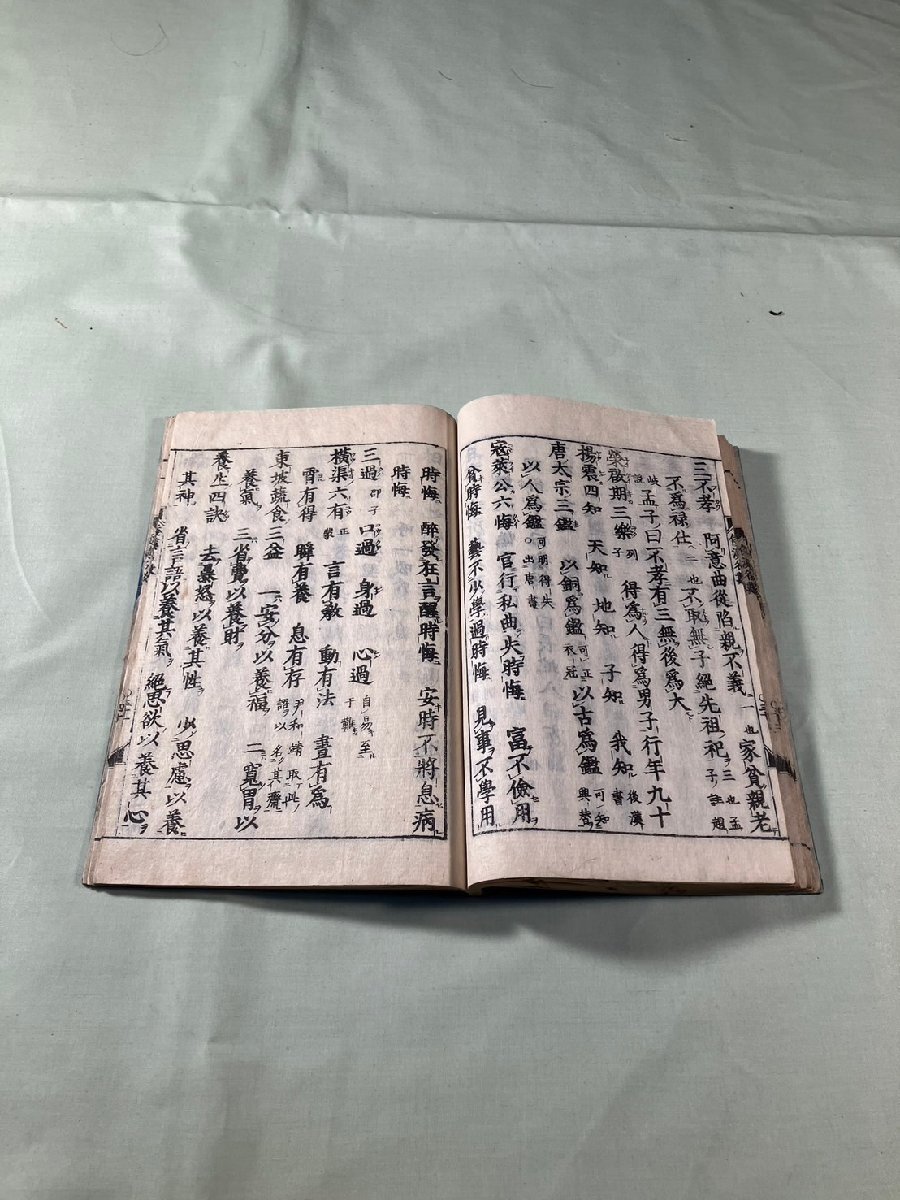 三不孝 阿意曲從陷親不義一也 家貧親老
不爲禄仕二也 不取無子絕先祖祀三也 孟子註趙
岐孟子曰不孝有三無後爲大
榮啟期三樂列子 得爲人 得爲男子 行年九十
楊震四知 天知 地知 子知 我知後漢書
唐太宗三鑑 以銅爲鑑可正衣冠 以古爲鑑可知興替
以人爲鑑可明得失 出唐書
寇萊公六悔 官行私曲失時悔 富不儉用
貧時悔 藝不少學過時悔 見事不學用
時悔 醉發狂言醒時悔 安時不將息病
時悔
三過邵子 口過 身過 心過自易至于難
橫渠六有正蒙 言有敎 動有法 晝有爲
宵有得 瞬有養 息有存尹和靖取此以名其齋
東坡蔬食三益 一安分以養福 二寬胃以
養氣 三省費以養財
養生四訣 去暴怒以養其性 少思慮以養
其神 省言語以養其氣 絕思欲以養其心